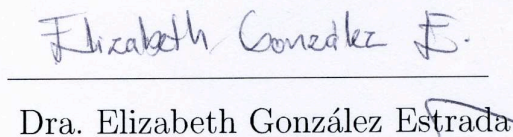 Elizabeth González E.
Dra. Elizabeth González Estrada